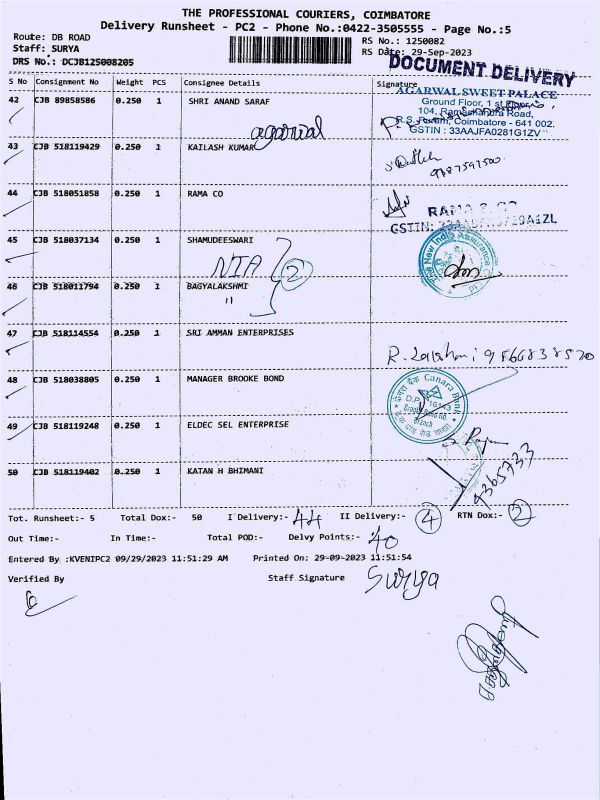 THE PROFESSIONAL COURIERS, COIMBATORE
Delivery Runsheet - PC2 - Phone No.:0422-3505555 - Page No.:5
Route: DB ROAD
RS No.: 1250082
Staff: SURYA
RS Date: 29-Sep-2023
DRS No.: DCJB125008205
DOCUMENT DELIVERY
S No Consignment No Weight PCS Consignee Details Signature
AGARWAL SWEET PALACE
42 CJB 89858586 0.250 1 SHRI ANAND SARAF
Ground Floor, 1 st Floor
104, Ramachandra Road,
R.S. Puram, Coimbatore - 641 002.
GSTIN : 33AAJFA0281G1ZV
agarwal
43 CJB 518119429 0.250 1 KAILASH KUMAR
44 CJB 518051858 0.250 1 RAMA CO
RAMA & CO
GSTIN:
45 CJB 518037134 0.250 1 SHAMUDEESWARI
The New India Assurance
NIA 2
46 CJB 518011794 0.250 1 BAGYALAKSHMI
"
47 CJB 518114554 0.250 1 SRI AMMAN ENTERPRISES
R. Lakshmi 9566838520
48 CJB 518038805 0.250 1 MANAGER BROOKE BOND
केनरा बैंक Canara Bank
Branch
49 CJB 518119248 0.250 1 ELDEC SEL ENTERPRISE
50 CJB 518119402 0.250 1 KATAN H BHIMANI
Tot. Runsheet:- 5 Total Dox:- 50 I Delivery:- 44 II Delivery:- 4 RTN Dox:- 2
Out Time:- In Time:- Total POD:- Delvy Points:- 40
Entered By :KVENIPC2 09/29/2023 11:51:29 AM Printed On: 29-09-2023 11:51:54
Verified By Staff Signature Surya